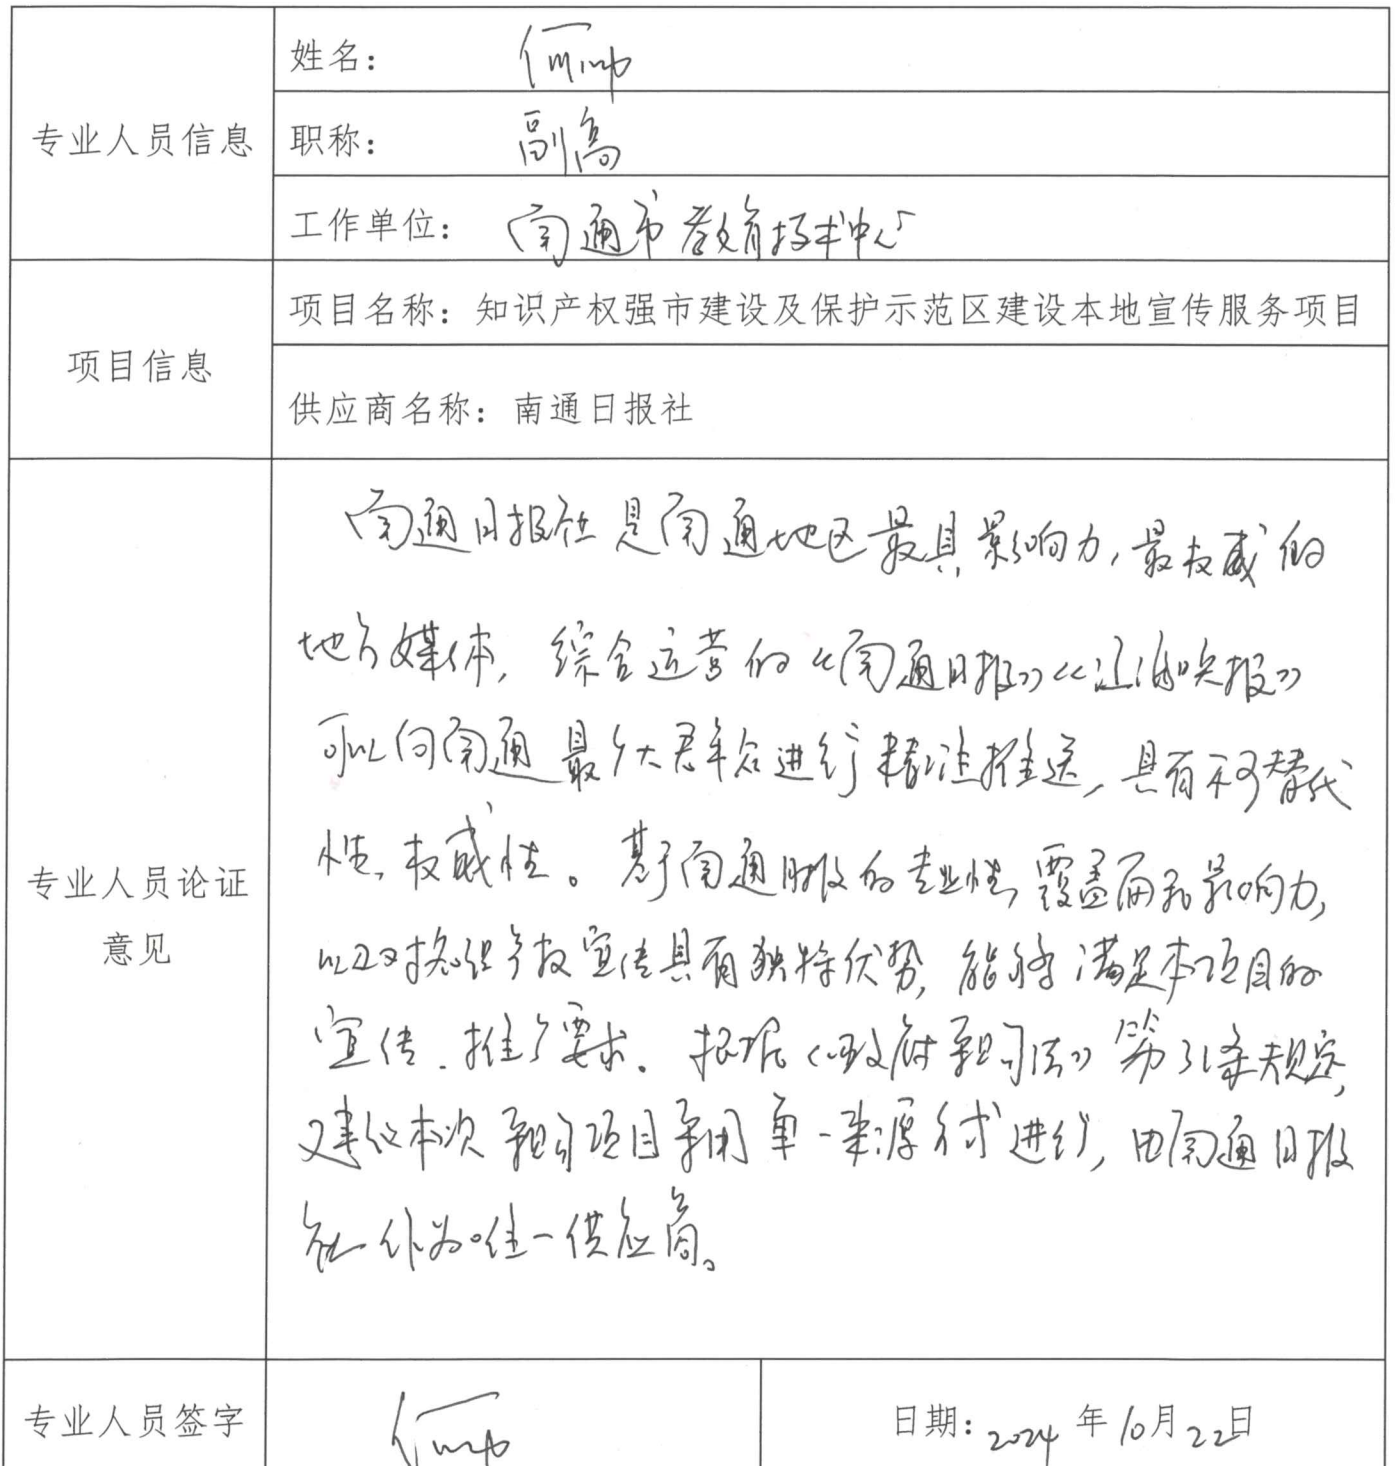 专业人员信息
姓名：何帅
职称：副高
工作单位：南通市教育技术中心
项目信息
项目名称：知识产权强市建设及保护示范区建设本地宣传服务项目
供应商名称：南通日报社
专业人员论证
意见
南通日报社是南通地区最具影响力,最权威的
地方媒体,综合运营的《南通日报》《江海晚报》
可以向南通最广大君群众进行精准推送,具有不可替代
性,权威性。基于南通日报的专业性,覆盖面和影响力,
以及对知识产权宣传具有独特优势,能够满足本项目的
宣传.推广要求.根据《政府采购法》第31条规定,
建议本次采购项目采用单一来源方式进行,由南通日报
社作为唯一供应商。
专业人员签字
何帅
日期：2024年10月22日